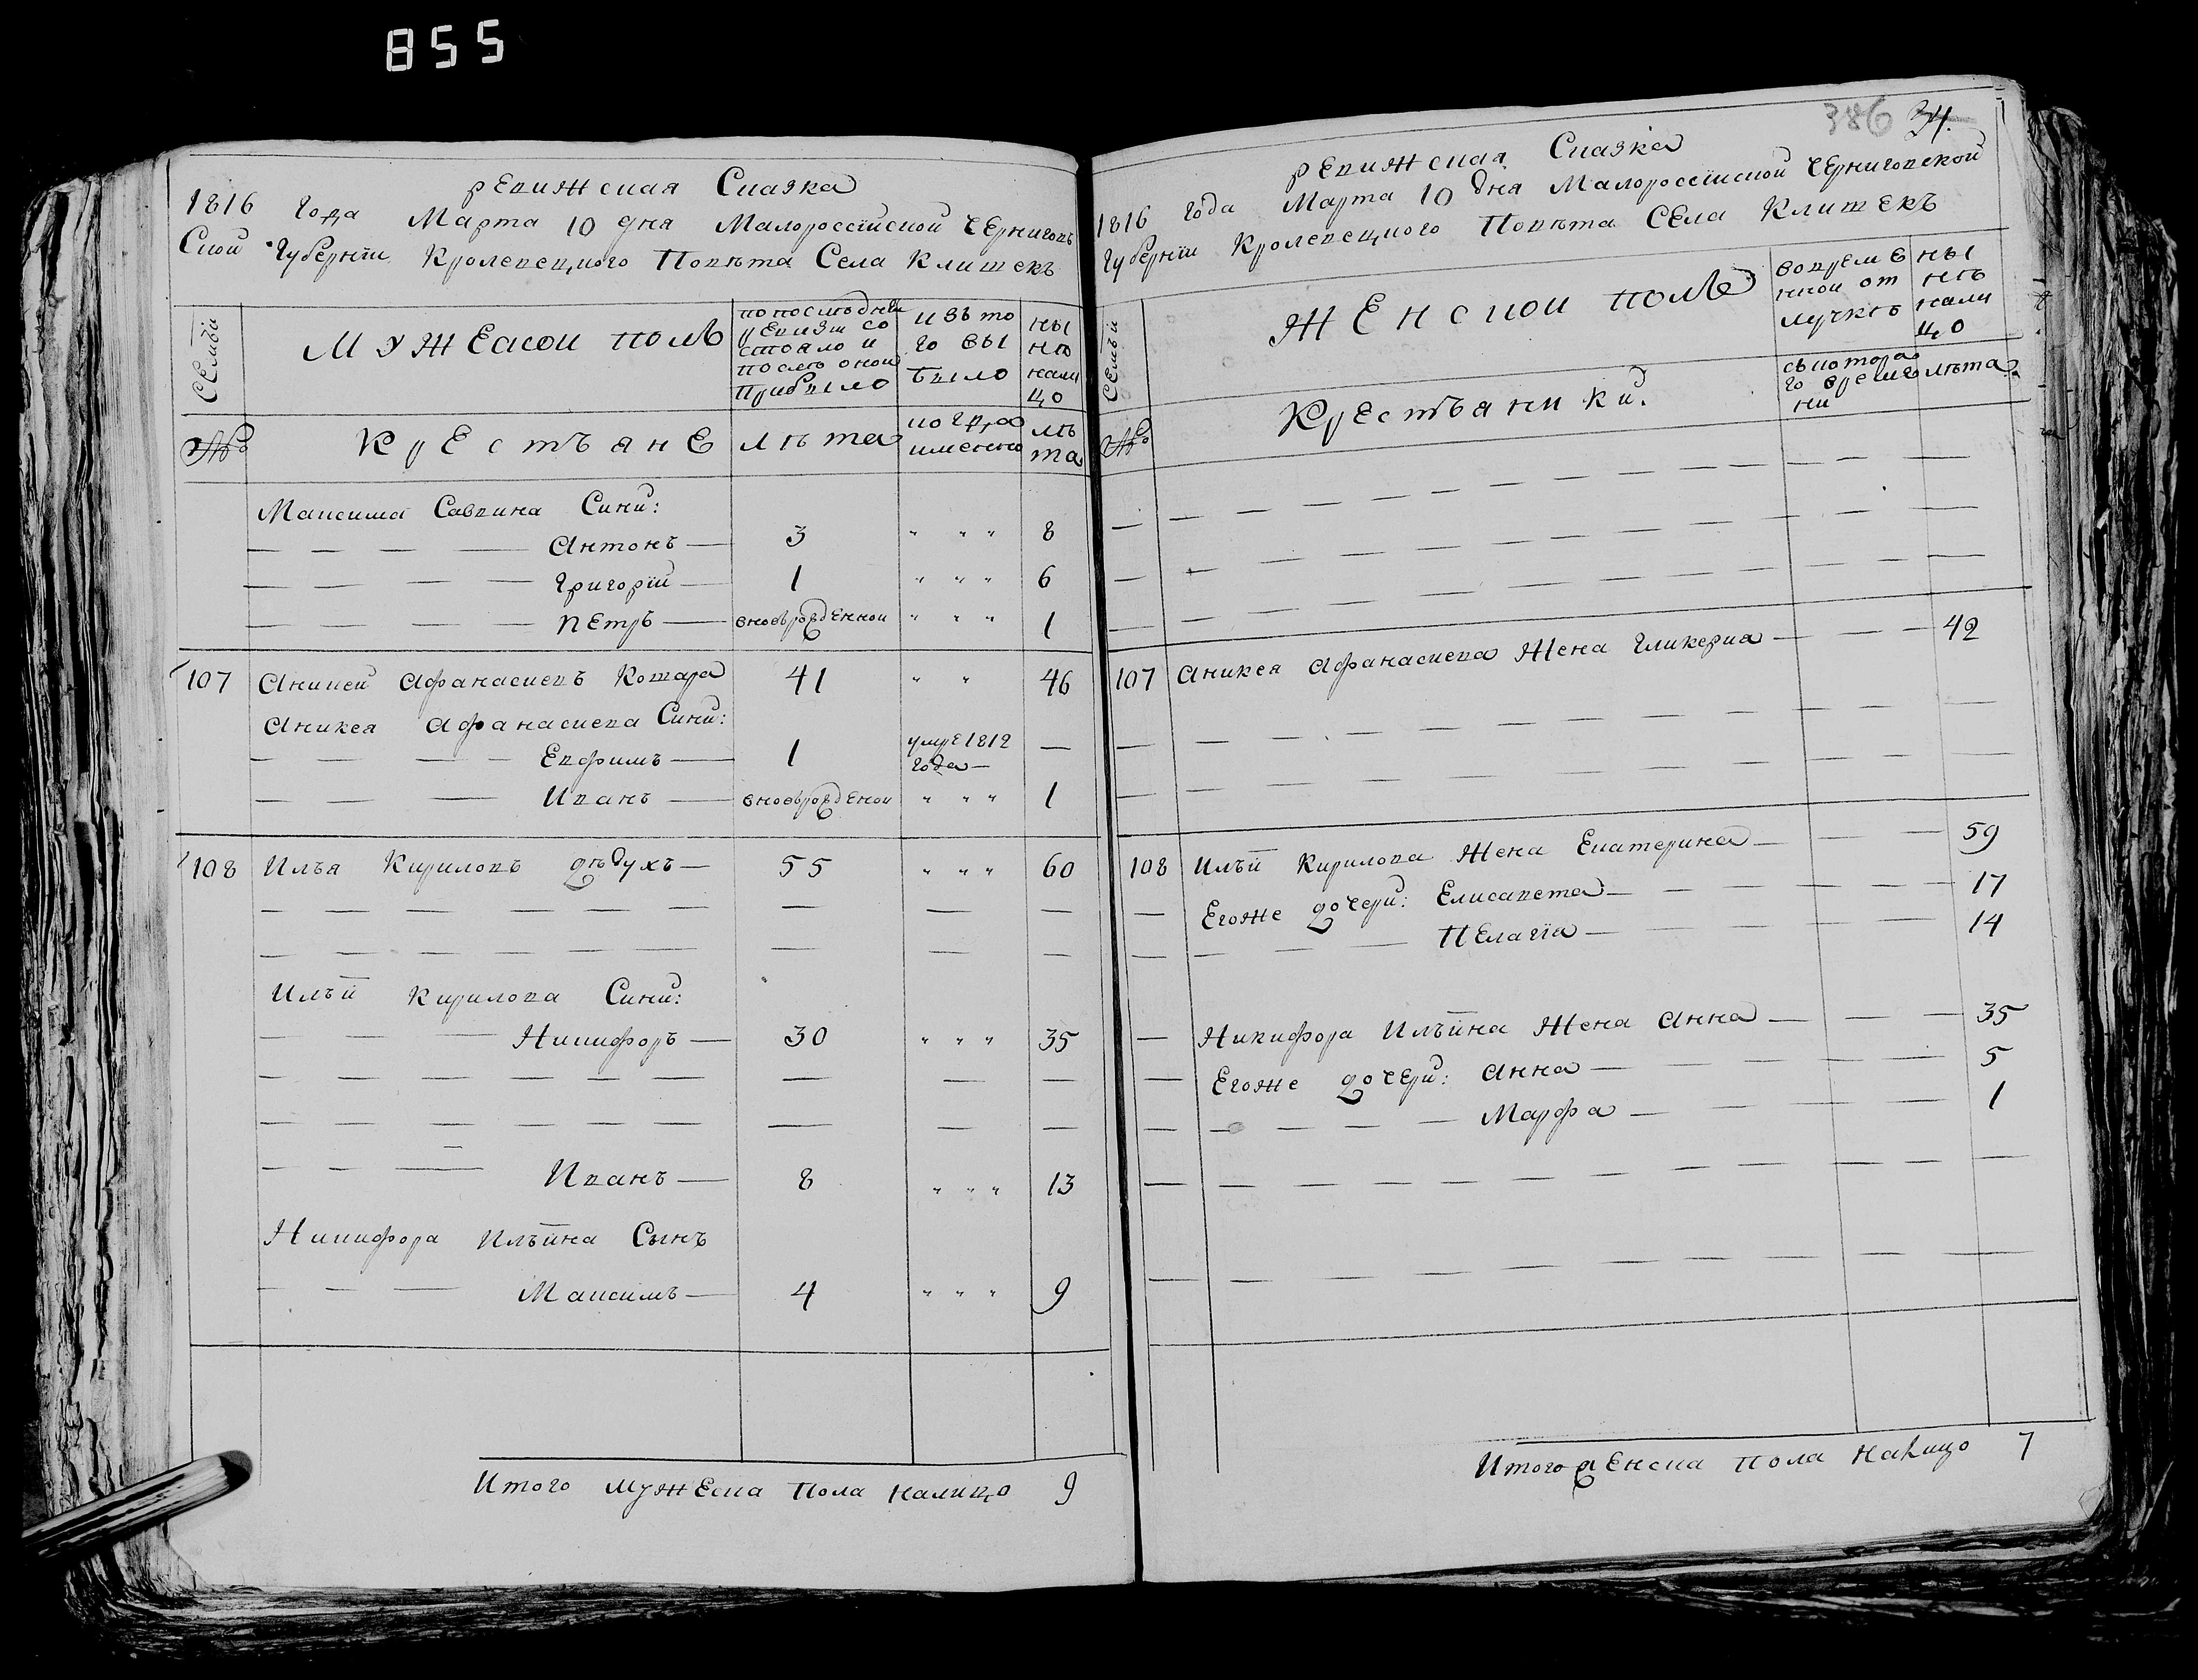 855
386 34.
ревижская Сказка
1816 года Марта 10 дня Малороссійской Чернигов
ской Губерніи Кролевецкого Повѣта Села Клишекъ
Семьи
Мужеской полъ
по последней ревизи со стояло и послѣ оной прибыло
изъ то го вы было
ны нѣ нали цо
№
Крестьяне
лѣта
когда именно
лѣ та
Максима Саввина Сини:
Антонъ 3 " " " 8
Григорій 1 " " " 6
Петръ вновьрожденной " " " 1
107 Аникей Афанасиевъ Котара 41 " " 46
Аникея Афанасиева Сини:
Евфимъ 1 умре 1812 года —
Иванъ вновьрожденой " " " 1
108 Илья Кириловъ дѣдухъ 55 " " " 60
Ильи Кирилова Сини:
Никифоръ 30 " " " 35
Иванъ 8 " " " 13
Никифора Ильина Сынъ
Максимъ 4 " " " 9
Итого мужеска пола налицо 9
ревижская Сказка
1816 года Марта 10 дня Малороссійской Черниговской
Губерніи Кролевецкого Повѣта Села Клишекъ
Семьи
Женской полъ
вовремен ной от лучкѣ
ны нѣ нали цо
№
Крестьянки.
съ котора го време ни
лѣта
107 Аникея Афанасиева Жена Гликерия 42
108 Ильи Кирилова Жена Екатерина 59
Егоже дочери: Елисавета 17
Пелагіа 14
Никифора Ильина Жена Анна 35
Егоже дочери: Анна 5
Марфа 1
Итого женска пола налицо 7